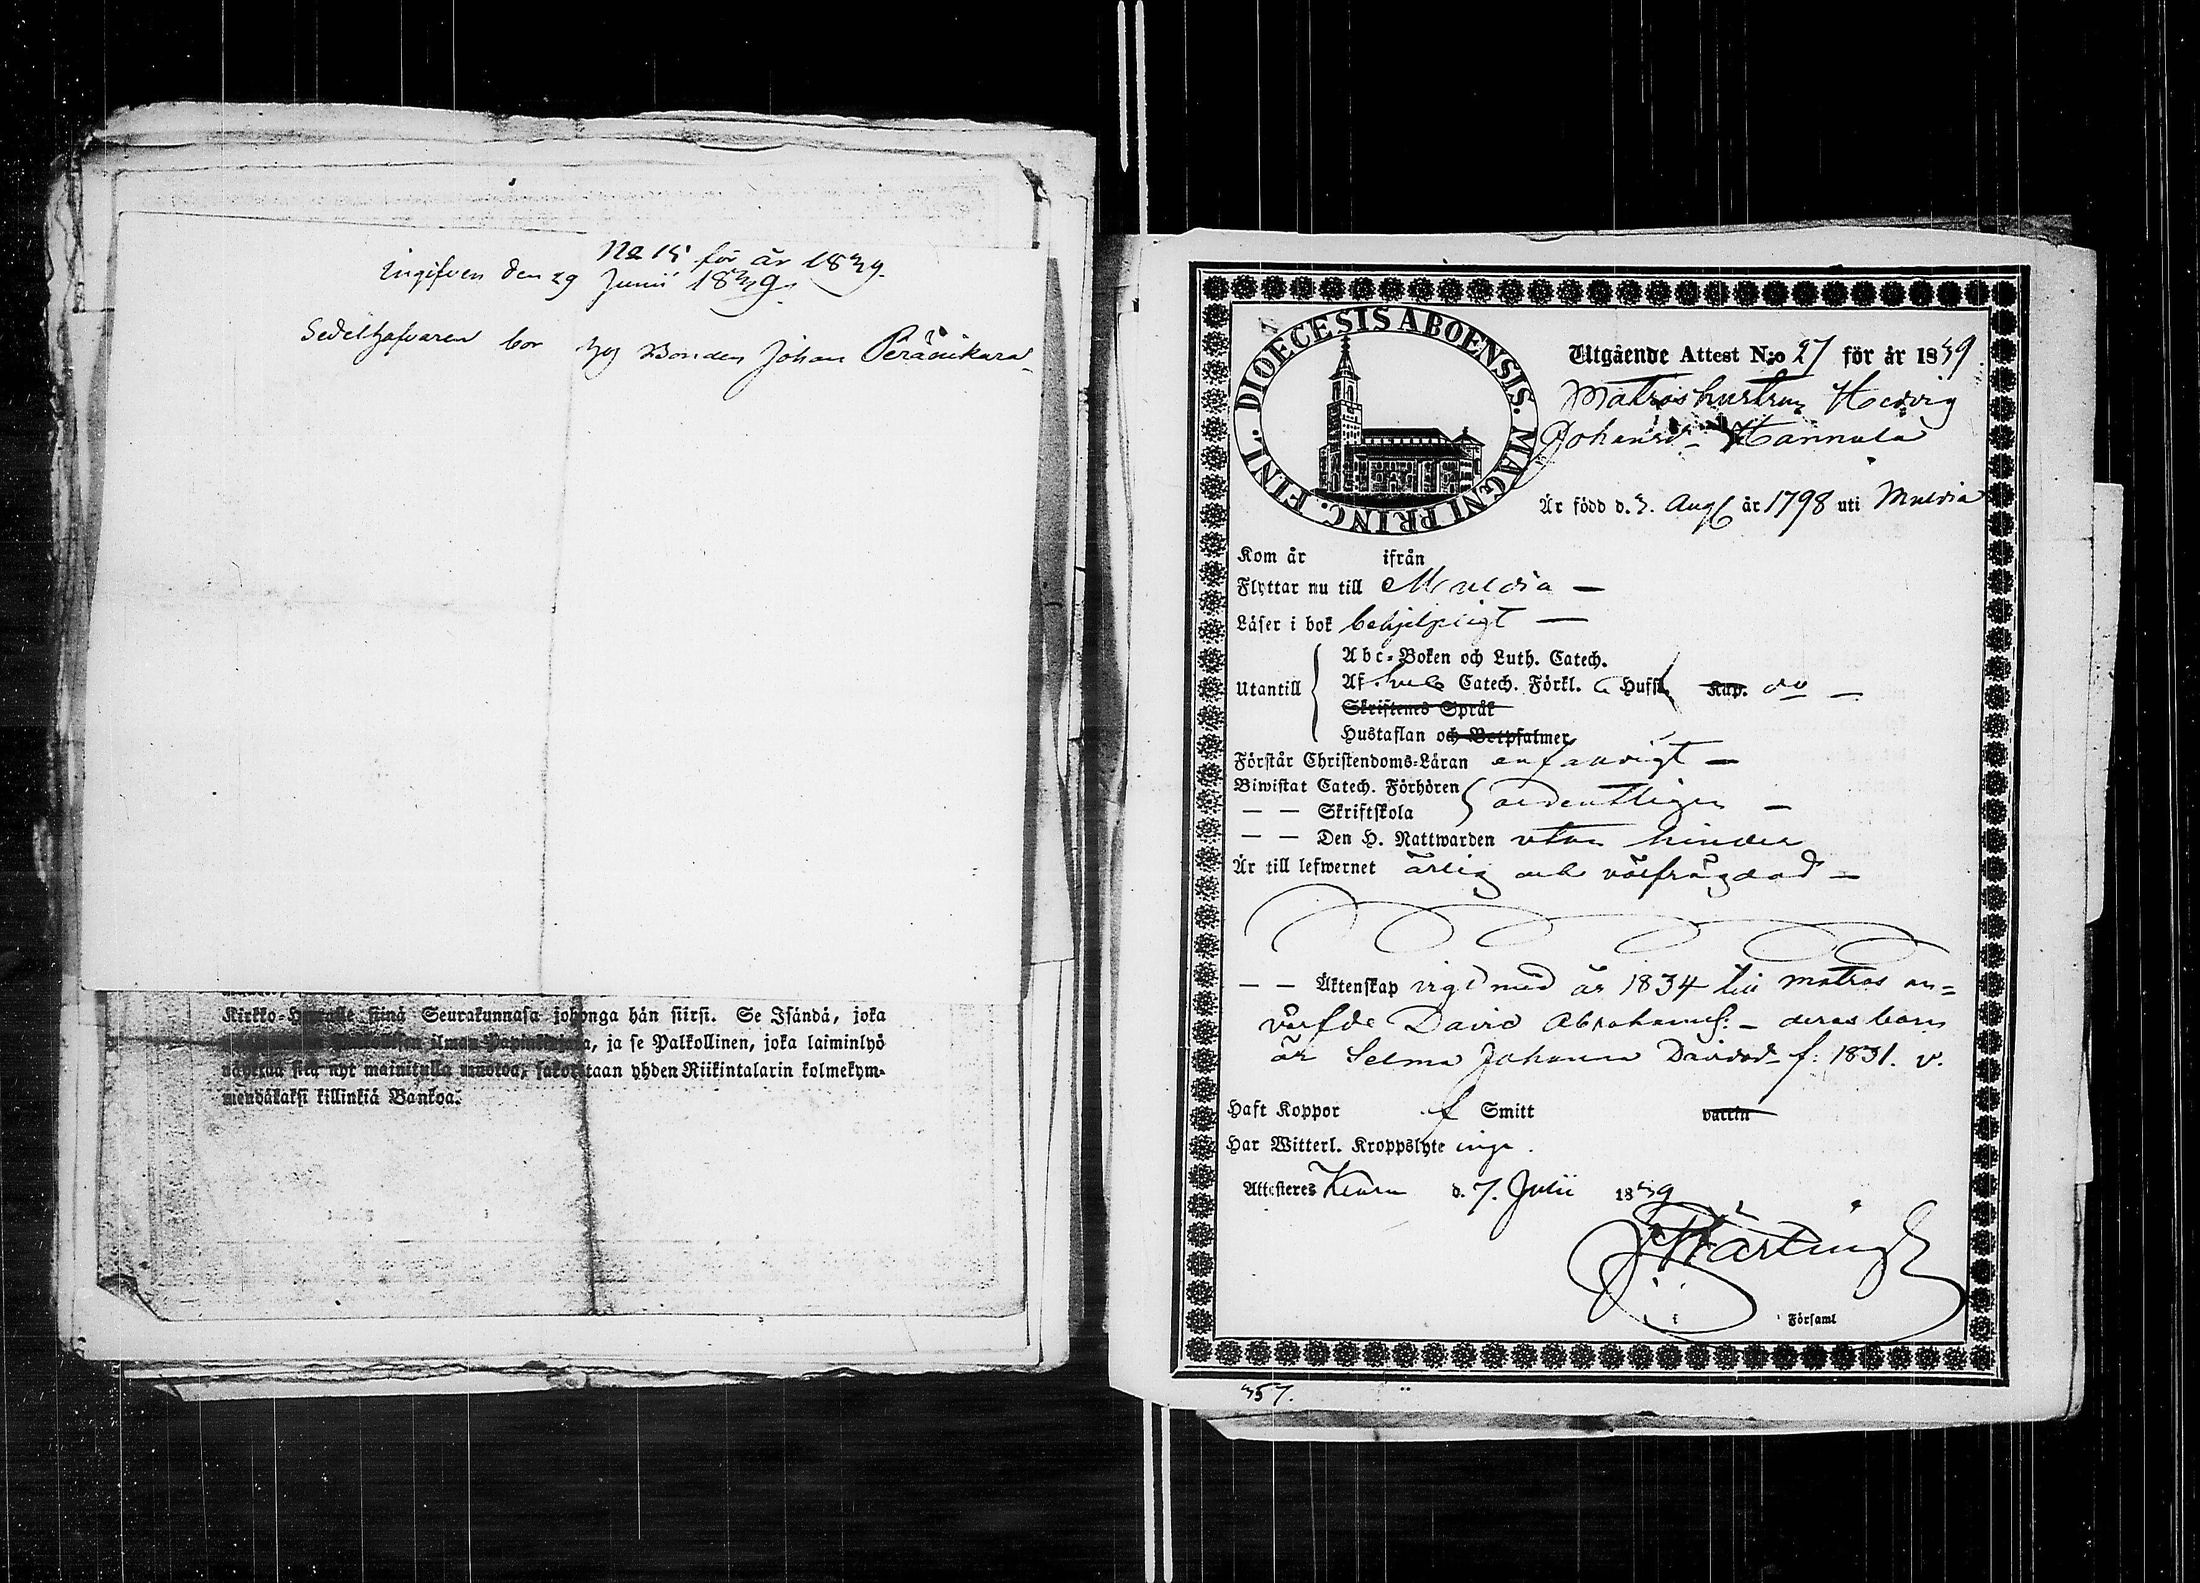 No 15 för år 1839.
Ingifven den 29 Junii 1839.
Sedelhafvaren bor hos Bonden Johan
Kirkko= siinä Seurakunnasa johonga hän siirsi. Se Isändä, joka
ilman Papinkirjata, ja se Palkollinen, joka laiminlyö
näyttää sitä nyt mainitulla muotoa, sakotetaan yhden Riikintalarin kolmekym-
mendäkaksi killinkiä Bankoa.
DIOECESIS ABOENSIS. MAGNI PRINC. FINL.
Utgående Attest N:o 27 för år 1839.
Matroshustrun Hedvig
Johansd. Hannula
Är född d. 3. Aug år 1798 uti Muldia
Kom år ifrån
Flyttar nu till Muldia —
Läser i bok behjelpligt —
Utantill
Abc=Boken och Luth. Catech.
Af Catech. Förkl. Hufst. Kap.
Skriftenes Språk
Hustaflan och Botpsalmer
Förstår Christendoms=Läran enfaldigt —
Biwistat Catech. Förhören ordentligen —
— — Skriftskola
— — Den H. Nattwarden utan hinder
Är till lefwernet ärlig och välfrägdad —
— — Äktenskap vigd med år 1834 till matros an=
David Abrahamss: — deras barn
är Selma Johanna Davidsd. f: 1831. v.
Haft Koppor f Smitt vaccin
Har Witterl. Kroppslyte inga.
Attesteres d. 7. Julii 1839
i Församl
357.